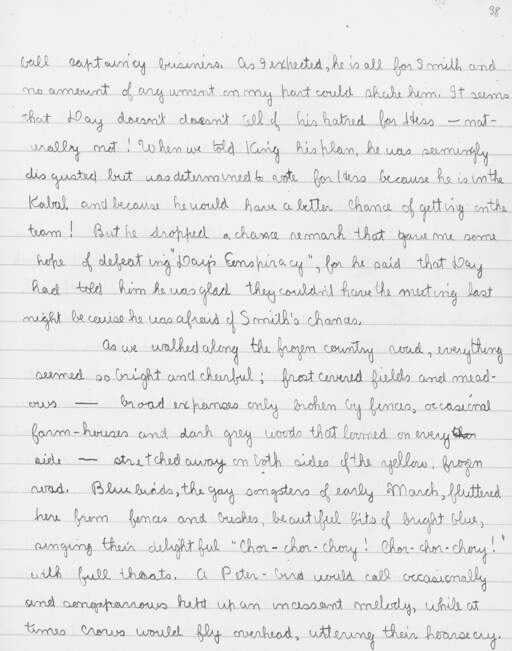 38
ball captaincy business. As I expected, he is all for Smith and
no amount of argument on my part could shake him. It seems
that Day doesn't doesn't tell of his hatred for Hess — nat-
urally not! When we told King his plan, he was seemingly
disgusted but was determined to vote for Hess because he is in the
Kabal and because he would have a better chance of getting on the
team! But he dropped a chance remark that gave me some
hope of defeating "Day's Conspiracy", for he said that Day
had told him he was glad they couldn't have the meeting last
night because he was afraid of Smith's chances.
As we walked along the frozen country road, everything
seemed so bright and cheerful; frost covered fields and mead-
ows — broad expanses only broken by fences, occasional
farm-houses and dark grey woods that loomed on every
side — stretched away on both sides of the yellow, frozen
road. Blue birds, the gay songsters of early March, fluttered
here from fences and bushes, beautiful bits of bright blue,
singing their delightful "Chor-chor-chory! Chor-chor-chory!"
with full throats. A Peter-bird would call occasionally
and songsparrows kept up an incessant melody, while at
times crows would fly overhead, uttering their hoarse cry.